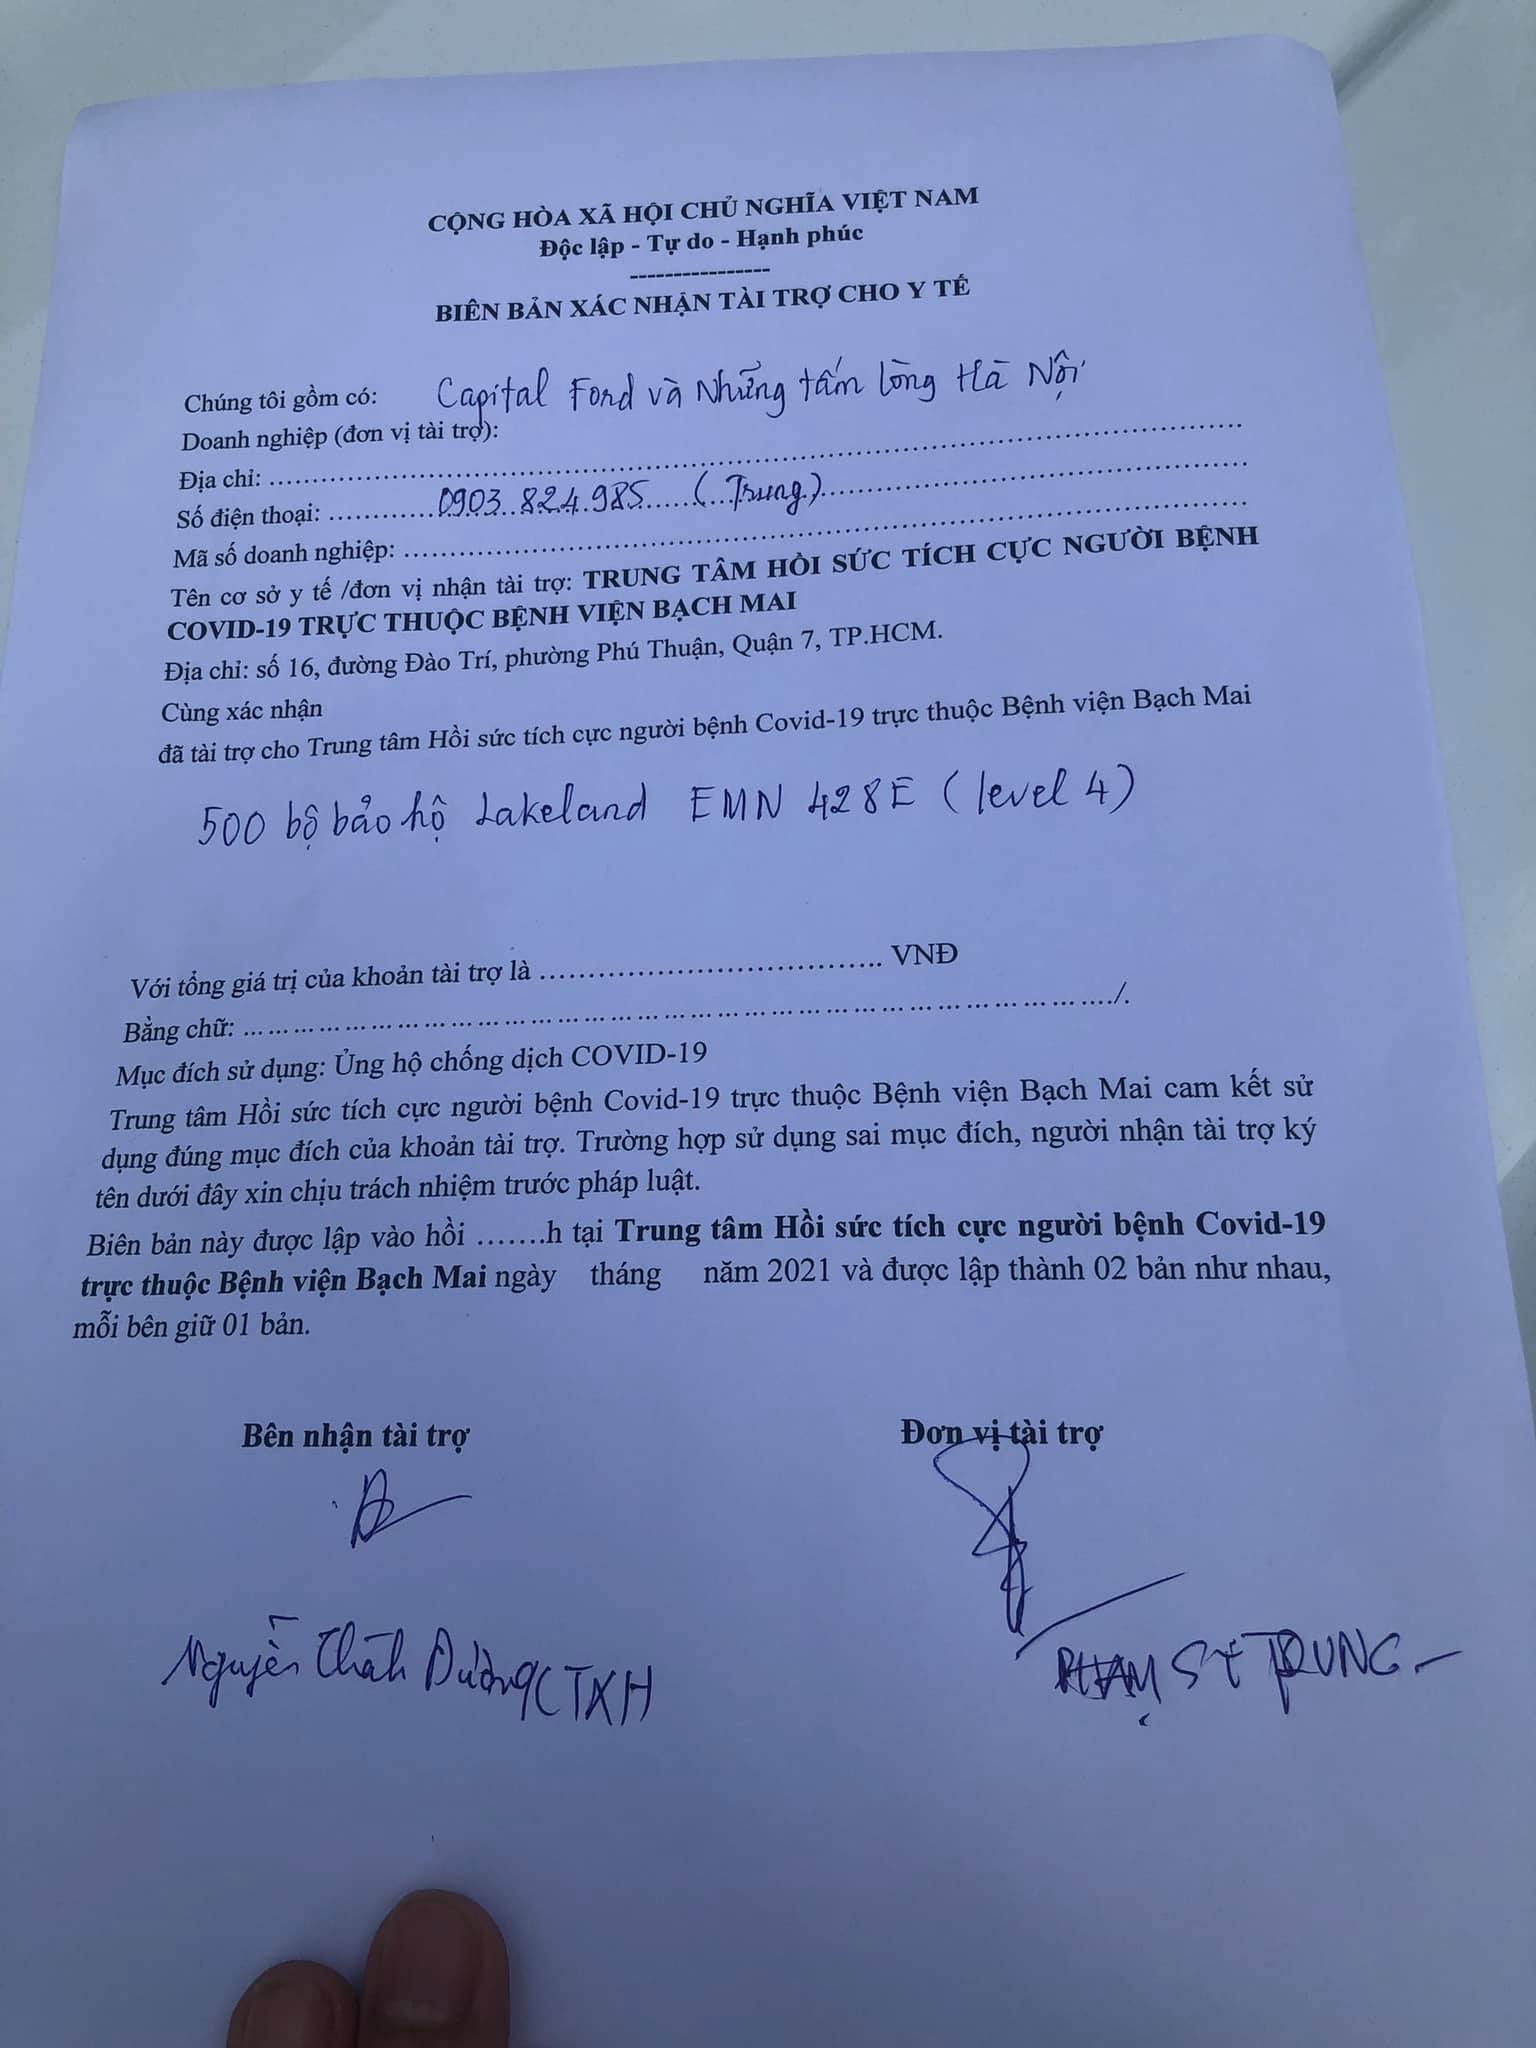 CỘNG HÒA XÃ HỘI CHỦ NGHĨA VIỆT NAM
Độc lập - Tự do - Hạnh phúc
----------------
BIÊN BẢN XÁC NHẬN TÀI TRỢ CHO Y TẾ
Chúng tôi gồm có: Capital Ford và Những tấm lòng Hà Nội
Doanh nghiệp (đơn vị tài trợ):
Địa chỉ: ……………………………………………………………
Số điện thoại: …………0903.824.985……(Trung)……………………
Mã số doanh nghiệp: ……………………………………………………
Tên cơ sở y tế /đơn vị nhận tài trợ: TRUNG TÂM HỒI SỨC TÍCH CỰC NGƯỜI BỆNH
COVID-19 TRỰC THUỘC BỆNH VIỆN BẠCH MAI
Địa chỉ: số 16, đường Đào Trí, phường Phú Thuận, Quận 7, TP.HCM.
Cùng xác nhận
đã tài trợ cho Trung tâm Hồi sức tích cực người bệnh Covid-19 trực thuộc Bệnh viện Bạch Mai
500 bộ bảo hộ Lakeland EMN 428E (level 4)
Với tổng giá trị của khoản tài trợ là …………………………….. VNĐ
Bằng chữ: ………………………………………………………………./.
Mục đích sử dụng: Ủng hộ chống dịch COVID-19
Trung tâm Hồi sức tích cực người bệnh Covid-19 trực thuộc Bệnh viện Bạch Mai cam kết sử
dụng đúng mục đích của khoản tài trợ. Trường hợp sử dụng sai mục đích, người nhận tài trợ ký
tên dưới đây xin chịu trách nhiệm trước pháp luật.
Biên bản này được lập vào hồi …….h tại Trung tâm Hồi sức tích cực người bệnh Covid-19
trực thuộc Bệnh viện Bạch Mai ngày tháng năm 2021 và được lập thành 02 bản như nhau,
mỗi bên giữ 01 bản.
Bên nhận tài trợ Đơn vị tài trợ
Nguyễn Thành Dương CTXH PHẠM SỸ TRUNG